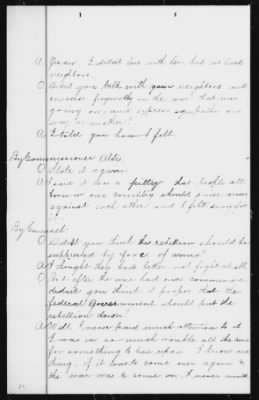 A Yes sir. I didst live with her, but we lived
neighbors.
Q Didst you talk with your neighbors and
converse frequently on the war that was
going on, and express sympathy one
way or another?
A I told you how I felt.
By Commissioner Aldis.
Q State it again.
A I said it was a pitty that people all
born in one country should raise arms
against each other and I felt sorry for
it.
By Counsel:
Q Didst you think this rebellion should be
suppressed by force of arms?
A I thought they had better not fight at all,
Q But after the war had once commenced
didst you think it proper that the
federal Government should put the
rebellion down?
A Well I never paid much attention to it
I was in so much trouble all the time
for something to live upon. I know one
thing, if it was to come over again &
the war was to come on, I never would